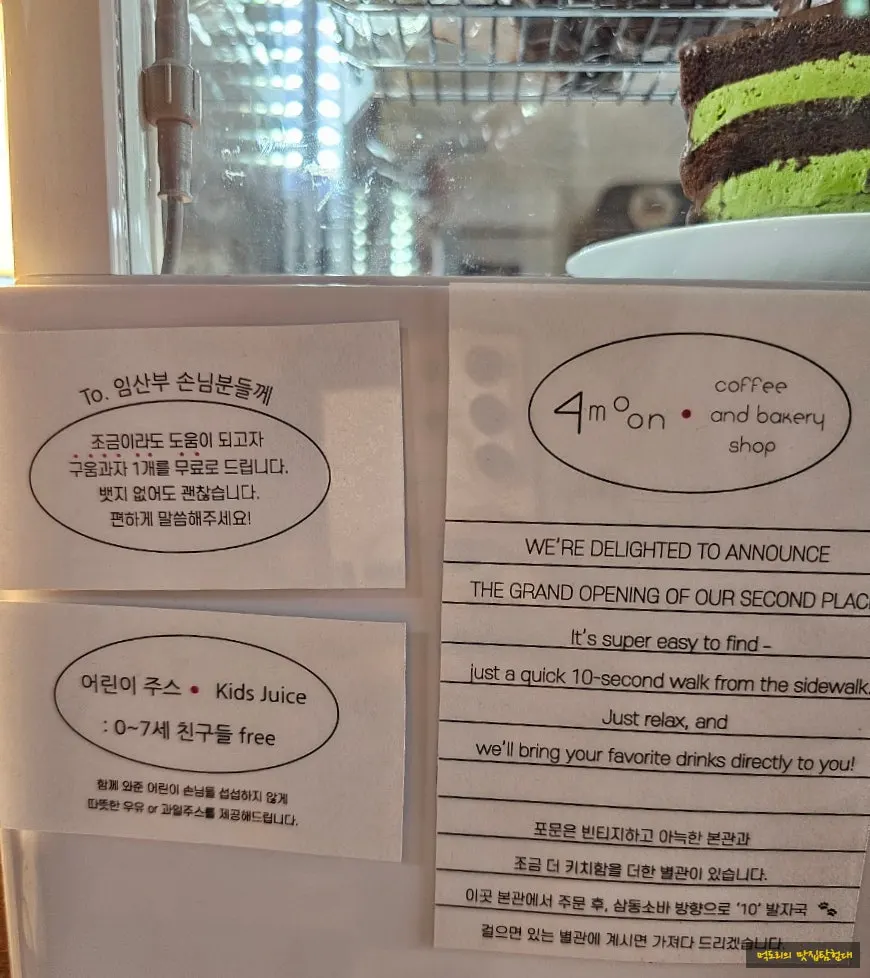 To. 임산부 손님분들께
조금이라도 도움이 되고자
구움과자 1개를 무료로 드립니다.
뱃지 없어도 괜찮습니다.
편하게 말씀해주세요!
어린이 주스 • Kids Juice
: 0~7세 친구들 free
함께 와준 어린이 손님들 섭섭하지 않게
따뜻한 우유 or 과일주스를 제공해드립니다.
4moon • coffee
and bakery
shop
WE'RE DELIGHTED TO ANNOUNCE
THE GRAND OPENING OF OUR SECOND PLAC
It's super easy to find –
just a quick 10-second walk from the sidewalk.
Just relax, and
we'll bring your favorite drinks directly to you!
포문은 빈티지하고 아늑한 본관과
조금 더 키치함을 더한 별관이 있습니다.
이곳 본관에서 주문 후, 삼동소바 방향으로 '10' 발자국
걸으면 있는 별관에 계시면 가져다 드리겠습니다.
먹도리의 맛집탐험대